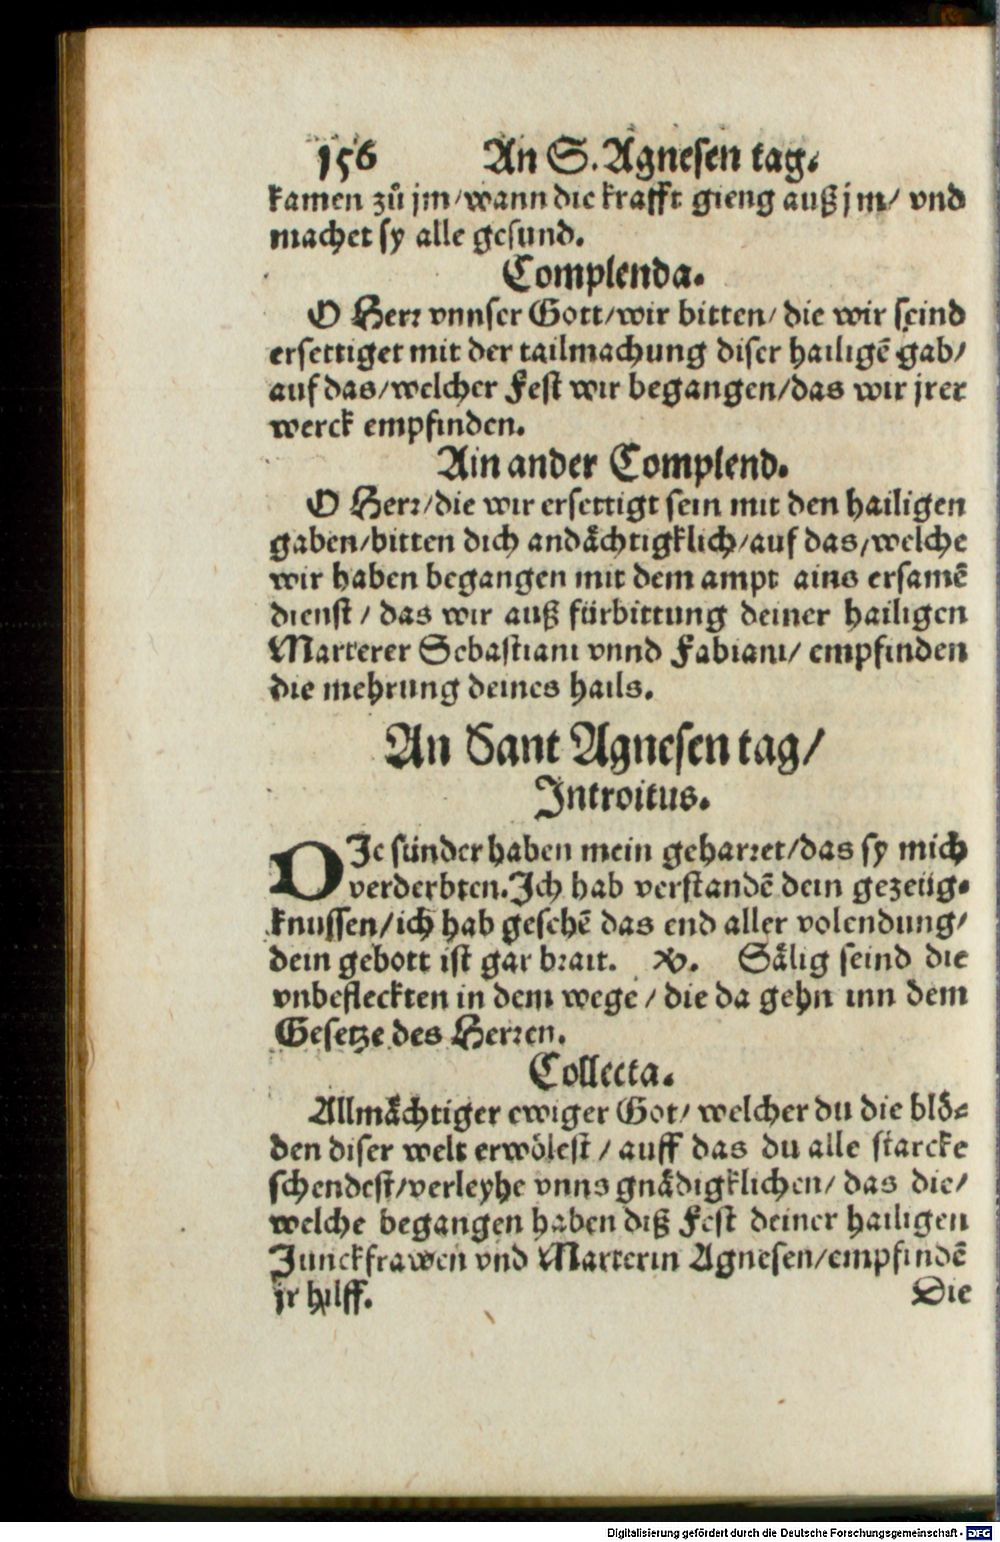 156 An S. Agnesen tag.
kamen zů jm/wann die krafft gieng auß jm/ vnd
machet sy alle gesund.
Complenda.
O Herr vnnser Gott/wir bitten/ die wir seind
ersettiget mit der tailmachung diser hailigē gab/
auf das/welcher Fest wir begangen/das wir jrer
werck empfinden.
Ain ander Complend.
O Herr/die wir ersettigt sein mit den hailigen
gaben/bitten dich andåchtigklich/auf das/welche
wir haben begangen mit dem ampt ains ersamē
dienst / das wir auß fürbittung deiner hailigen
Marterer Sebastiani vnnd Fabiani/ empfinden
die mehrung deines hails.
An Sant Agnesen tag/
Introitus.
DIe sünder haben mein geharret/das sy mich
verderbten. Ich hab verstandē dein gezeüg-
knussen/ich hab gesehē das end aller volendung/
dein gebott ist gar brait. V. Sålig seind die
vnbefleckten in dem wege / die da gehn inn dem
Gesetze des Herren.
Collecta.
Allmåchtiger ewiger Got/ welcher du die blö-
den diser welt erwölest / auff das du alle starcke
schendest/verleyhe vnns gnådigklichen/ das die/
welche begangen haben diß Fest deiner hailigen
Junckfrawen vnd Marterin Agnesen/empfindē
jr hilff. Die
Digitalisierung gefördert durch die Deutsche Forschungsgemeinschaft - DFG